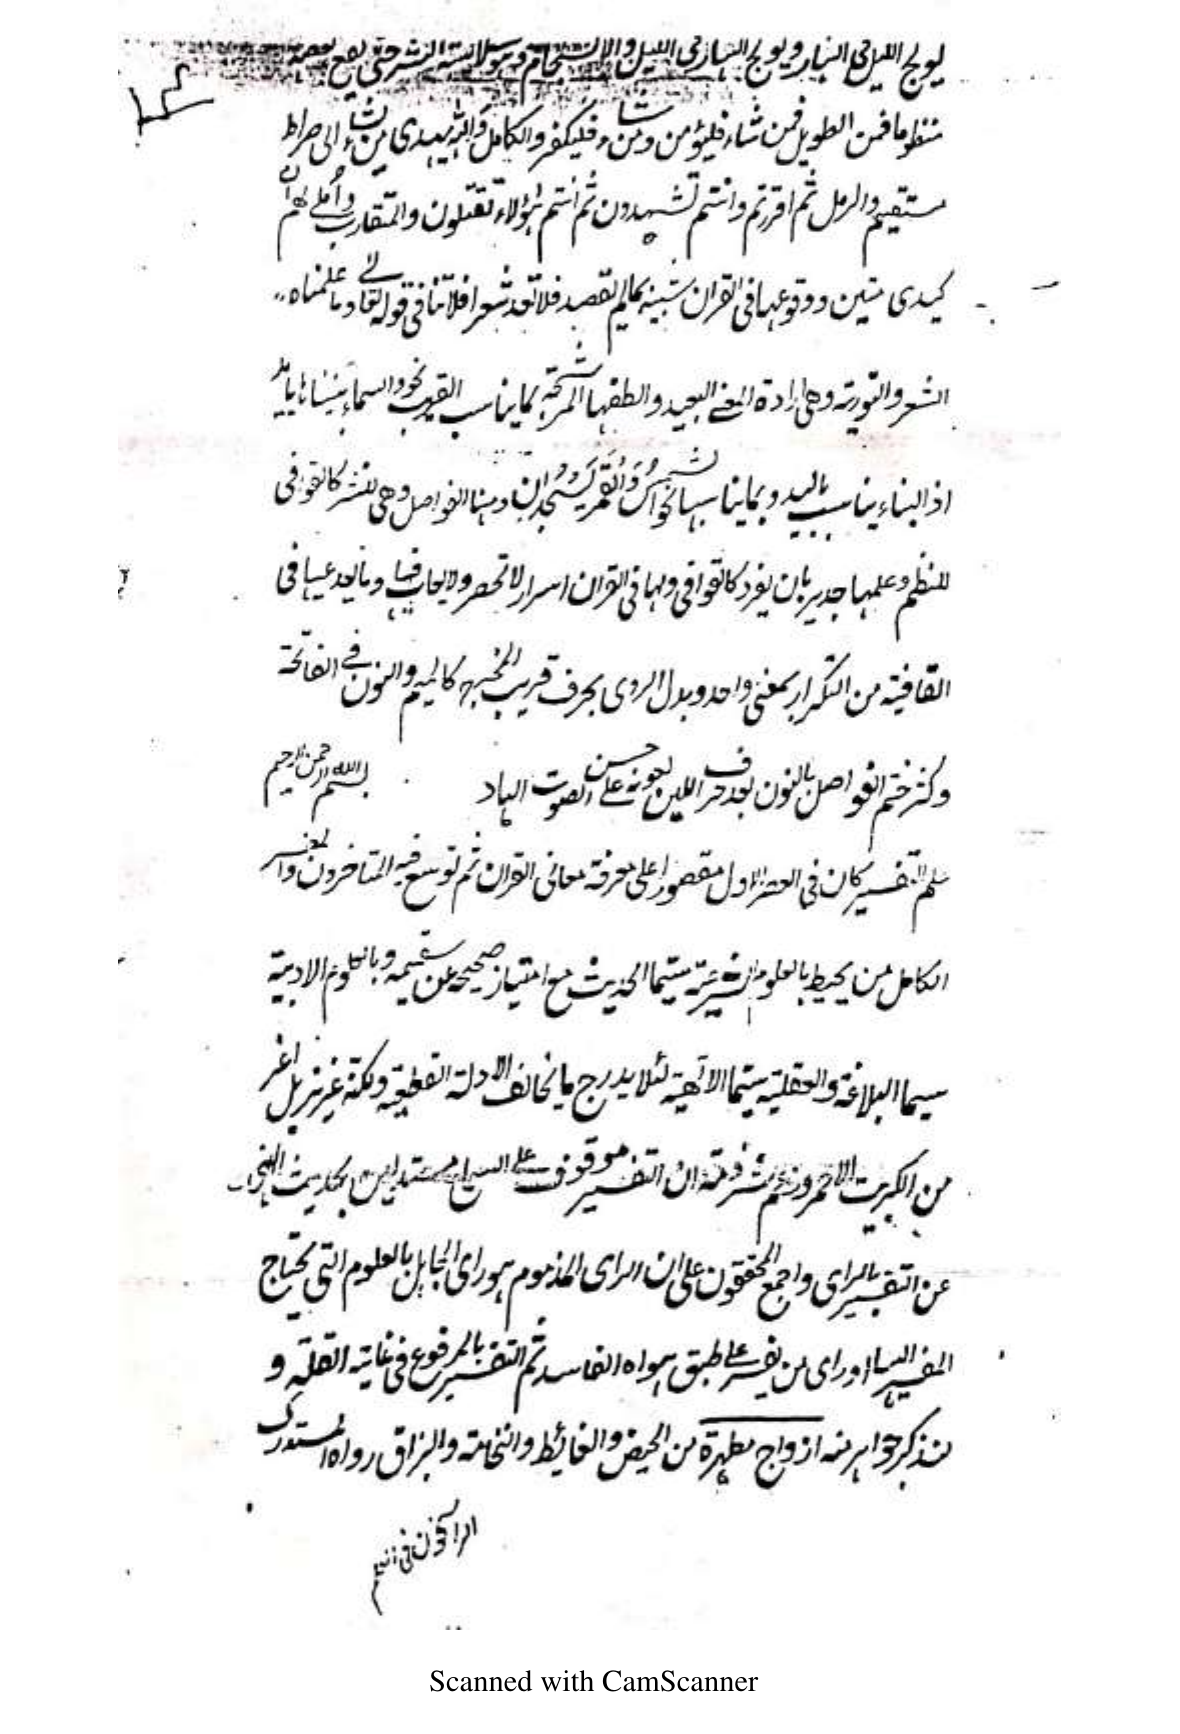 يولج الليل فى النهار ويولج النهار فى الليل والانسجام وهو سلاسة النثر حتى يقع بعضه
١٣
منظوما فمن الطويل فمن شاء فليؤمن ومن شاء فليكفر والكامل والله يهدى من يشاء الى صراط
مستقيم والرمل ثم اقررتم وانتم تشهدون ثم انتم هؤلاء تقتلون والمتقارب واملى لهم ان
كيدى متين ووقوعها فى القران شبيه بمالم يقصد فلا تعد شعرا فلا تنافى قوله تعالى وما علمناه
الشعر والتورية وهى ارادة المعنى البعيد والطفها المرشحة بما يناسب القريب نحو والسماء بنيناها بايد
اذ البناء يناسب باليد وبما يناسبها نحو الشمس والقمر يسجدان وهنا الفواصل وهى للنثر كالقوافى
للنظم وعلمها جدير بان يفرد كالقوافى ولها فى القران اسرار لا تحصر ولا يعاب فيها وما يعد عيبا فى
القافية من التكرار بمعنى واحد وبدل الروى بحرف قريب المخرج كالميم والنون فى الفاتحة
وكثر ختم الفواصل بالنون بعد حرف اللين لعونه على حسن الصوت الهاد
بسم الله الرحمن الرحيم
علم التفسير كان فى العصر الاول مقصورا على معرفة معانى القران ثم توسع فيه المتاخرون والمفسر
الكامل من يحيط بالعلوم الشرعية سيما الحديث مع امتياز صحيحه عن سقيمه وبالعلوم الادبية
سيما البلاغة والعقلية سيما الالهية لئلا يدرج ما يخالف الادلة القطعية ولكنه عزيز بل اعز
من الكبريت الاحمر وزعم شرذمة ان التفسير موقوف على السماع مستدلين بحديث النهى
عن التفسير بالراى واجمع المحققون على ان الراى المذموم هو راى الجاهل بالعلوم التى يحتاج
المفسر اليها او راى من يفسر على طبق هواه الفاسد ثم التفسير بالمرفوع فى غاية القلة و
لنذكر جواهر منه ازواج مطهرة من الحيض والغائط والنخامة والبزاق رواه المستدرك
الراسخون فى العلم
Scanned with CamScanner